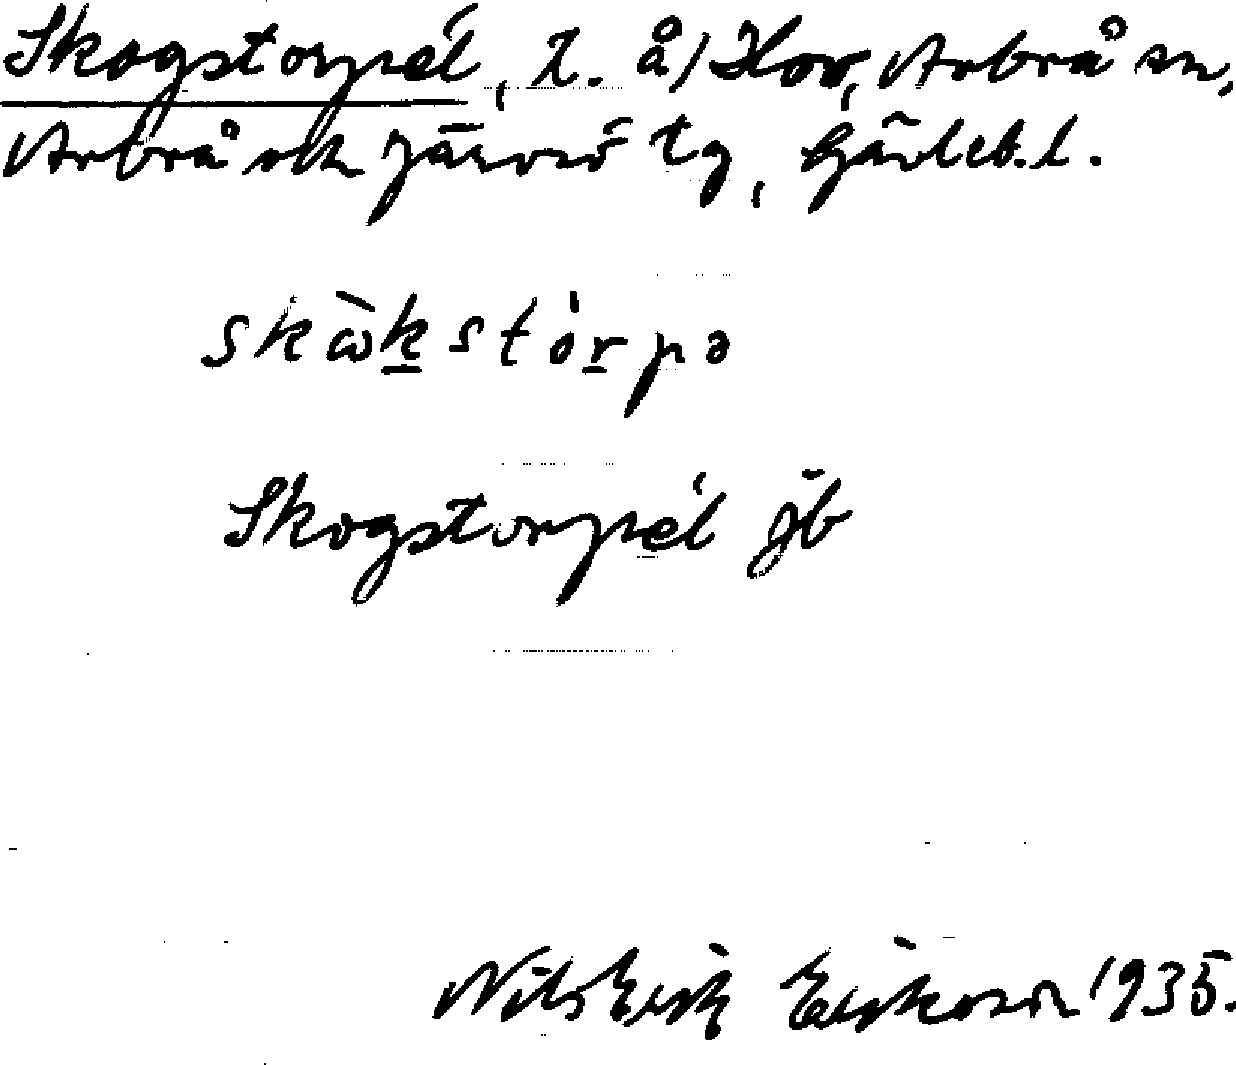 Skogstorpél, l. å) Hov, Arbrå sn,
Arbrå och Järvsö tg, Gävleb. l.
skὼkstórpə
Skogstorpél jb
Nils Erik Eriksson 1935.